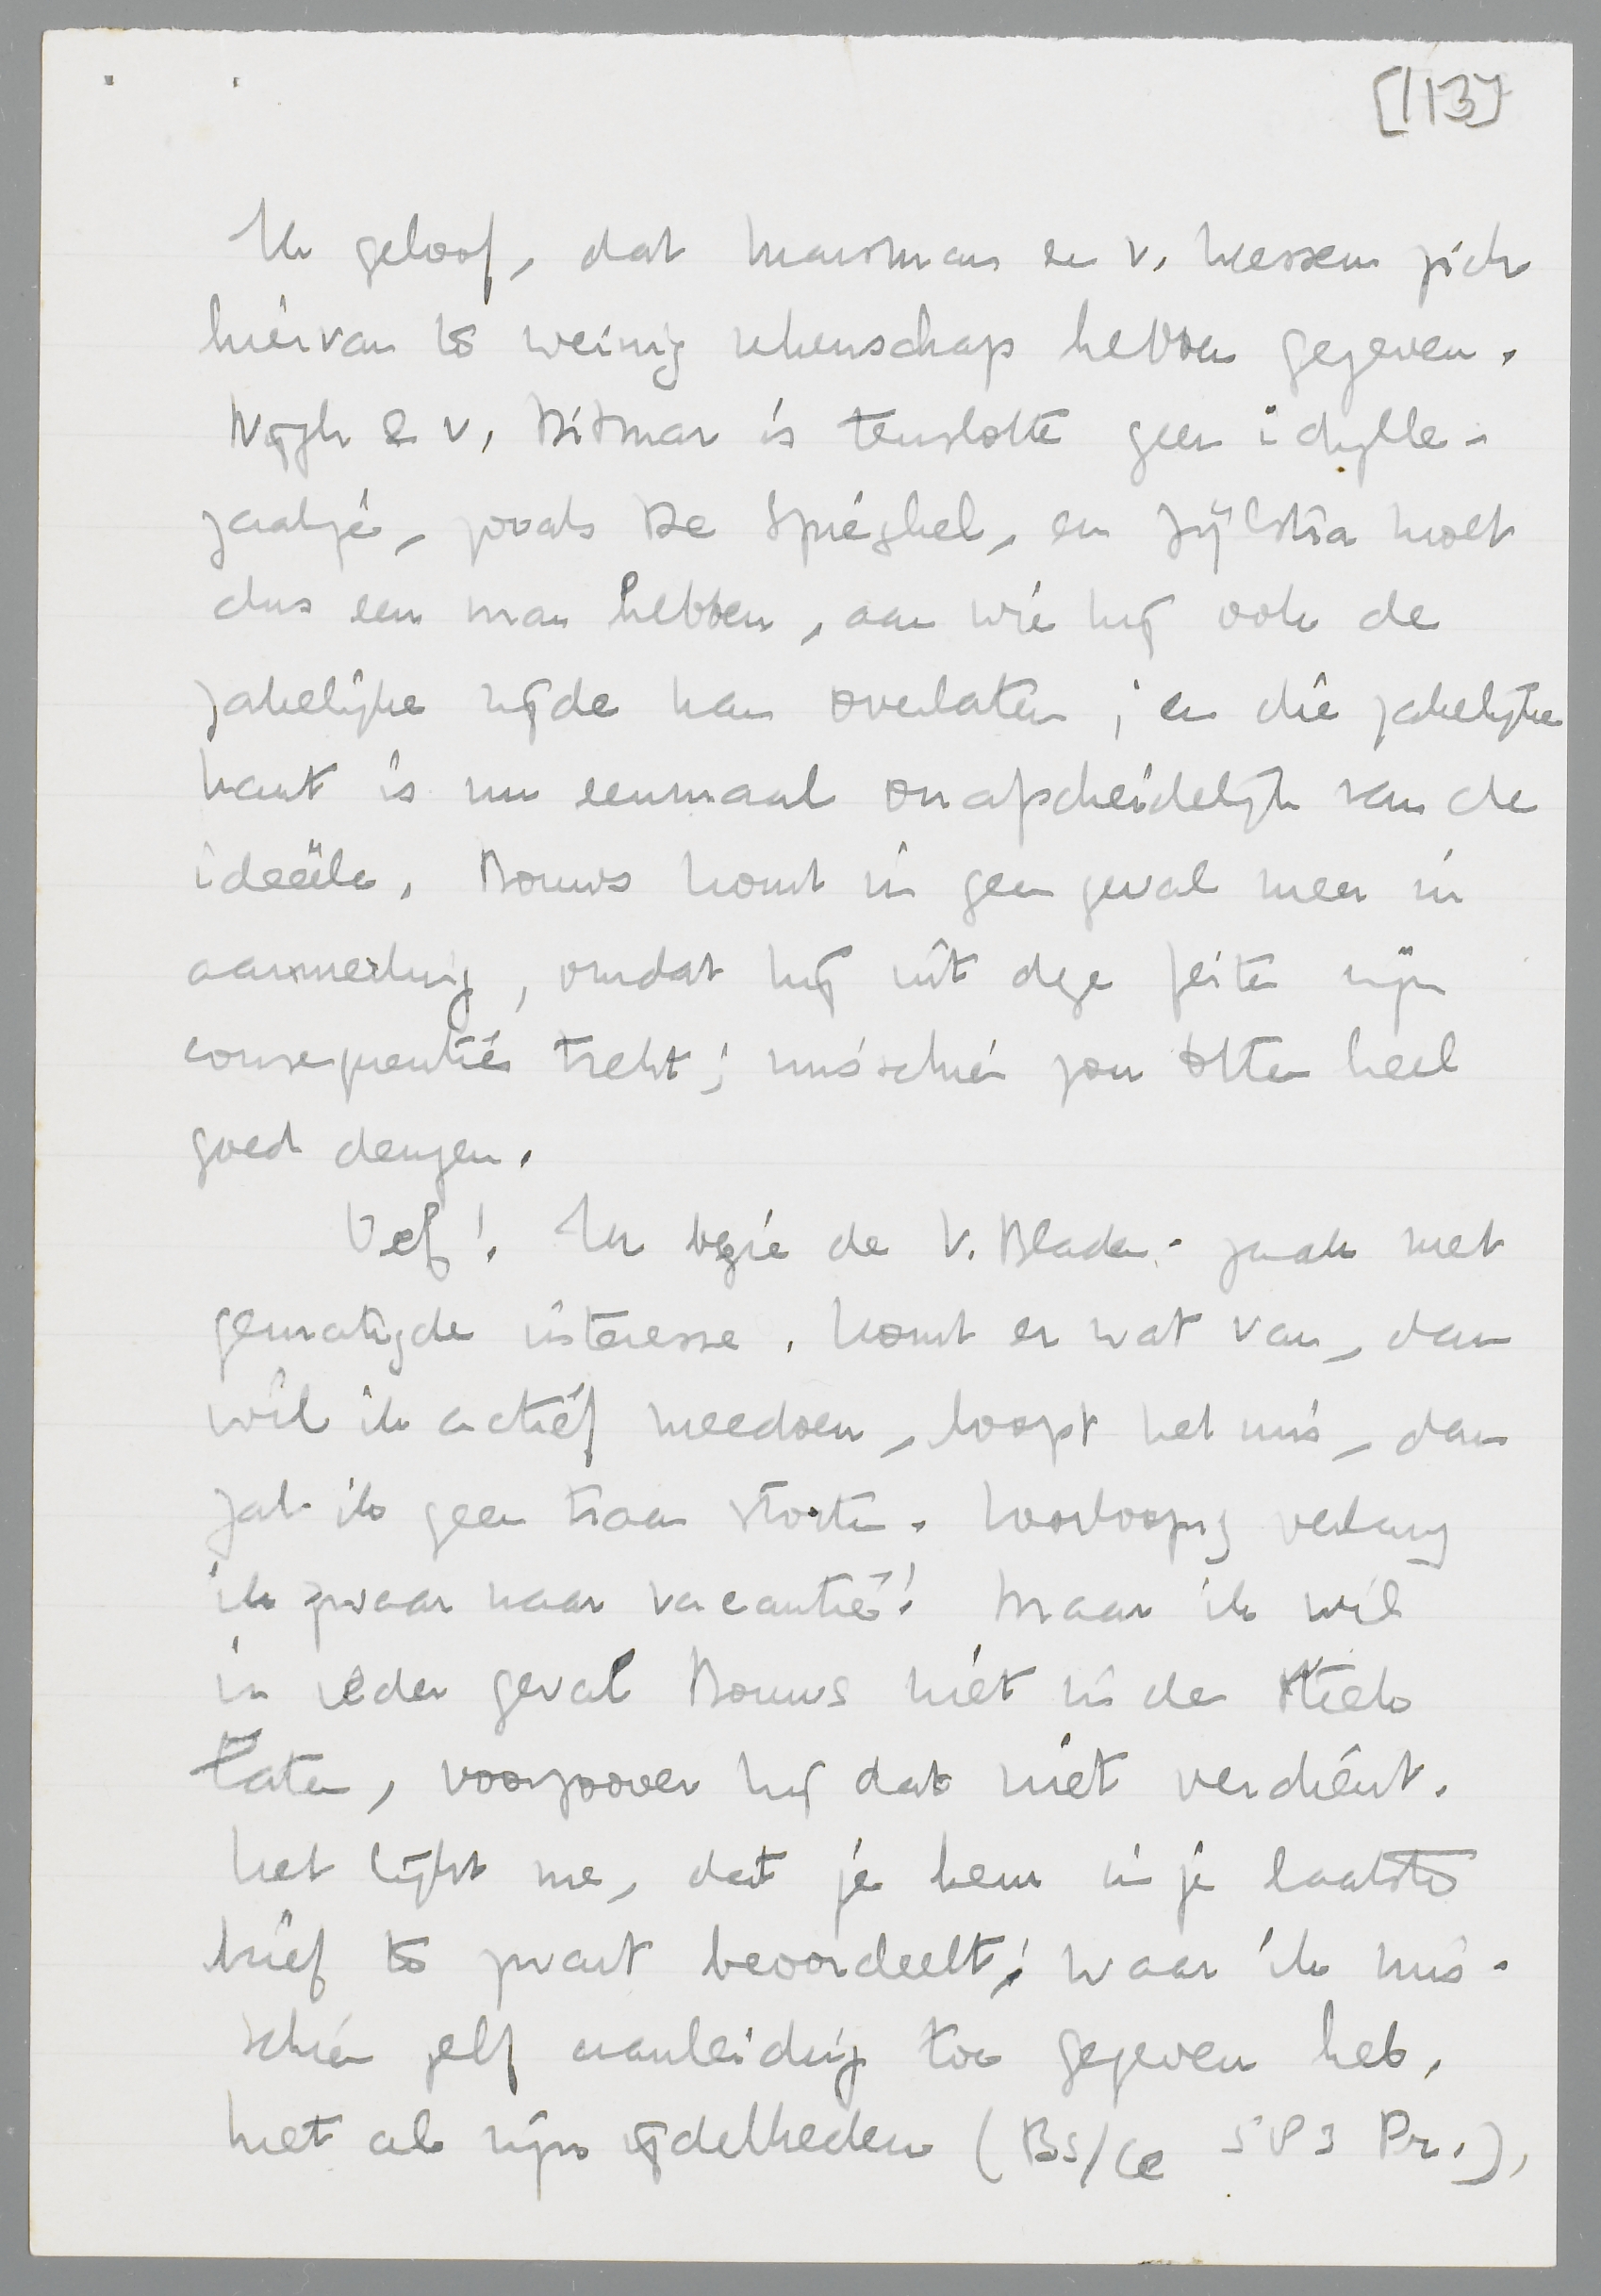 [113]
Ik geloof, dat Marsman en v. Wessem zich
hiervan te weinig rekenschap hebben gegeven.
Nijgh en v. Ditmar is tenslotte geen idylle-
zaakje, zooals De Spieghel, en Zijlstra moet
dus een man hebben, aan wie hij ook de
zakelijke zijde kan overlaten; en die zakelijke
kant is nu eenmaal onafscheidelijk van de
ideëele. Bouws komt in geen geval meer in
aanmerking, omdat hij uit deze feiten zijn
consequenties trekt; misschien zou Otten heel
goed deugen.
Uef! Ik bezie de V. Bladen-zaak met
gematigde interesse. Komt er wat van, dan
wil ik actief meedoen, loopt het mis, dan
zal ik geen traan storten. Voorloopig verlang
ik zwaar naar vacantie! Maar ik wil
in ieder geval Bouws niet in de steek
laten, voorzoover hij dat niet verdient.
Het lijkt me, dat je hem in je laatste
brief te zwart beoordeelt; waar ik mis-
schien zelf aanleiding toe gegeven heb.
Met al zijn ijdelheden (Bs/Ce 583 Pr.),